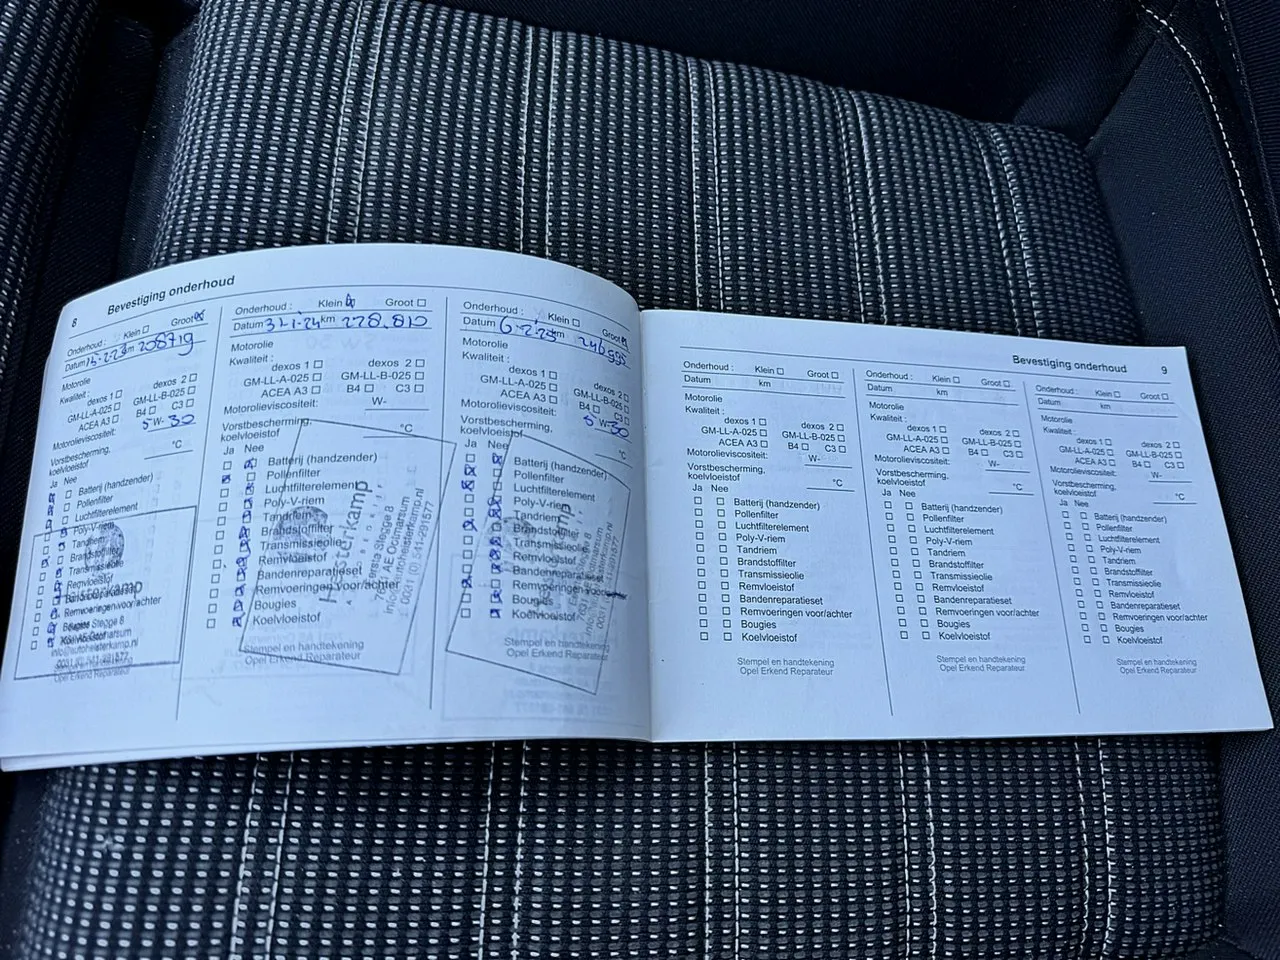 8 Bevestiging onderhoud
Onderhoud : Klein Groot
Datum 15-2-23 km 208719
Motorolie
Kwaliteit : dexos 1 dexos 2
GM-LL-A-025 GM-LL-B-025
ACEA A3 B4 C3
Motorolieviscositeit: 5 W- 30
Vorstbescherming, koelvloeistof °C
Ja Nee
Batterij (handzender)
Pollenfilter
Luchtfilterelement
Poly-V-riem
Tandriem
Brandstoffilter
Transmissieolie
Remvloeistof
Bandenreparatieset
Remvoeringen voor/achter
Bougies
Koelvloeistof
Stegge 8
info@autoheisterkamp.nl
0031 (0) 541-291577
Opel Erkend Reparateur
Onderhoud : Klein Groot
Datum 31-1-24 km 228.810
Motorolie
Kwaliteit : dexos 1 dexos 2
GM-LL-A-025 GM-LL-B-025
ACEA A3 B4 C3
Motorolieviscositeit: W-
Vorstbescherming,
koelvloeistof °C
Ja Nee
Batterij (handzender)
Pollenfilter
Luchtfilterelement
Poly-V-riem
Tandriem
Brandstoffilter
Transmissieolie
Remvloeistof
Bandenreparatieset
Remvoeringen voor/achter
Bougies
Koelvloeistof
Heisterkamp
Eerste Stegge 8
AE Ootmarsum
info@autoheisterkamp.nl
0031 (0) 541-291577
Stempel en handtekening
Opel Erkend Reparateur
Onderhoud : Klein Groot
Datum 6-2-25 km 246995
Motorolie
Kwaliteit : dexos 1 dexos 2
GM-LL-A-025 GM-LL-B-025
ACEA A3 B4 C3
Motorolieviscositeit: 5 W- 30
Vorstbescherming,
koelvloeistof °C
Ja Nee
Batterij (handzender)
Pollenfilter
Luchtfilterelement
Poly-V-riem
Tandriem
Brandstoffilter
Transmissieolie
Remvloeistof
Bandenreparatieset
Remvoeringen voor/achter
Bougies
Koelvloeistof
Stempel en handtekening
Opel Erkend Reparateur
Bevestiging onderhoud 9
Onderhoud : Klein Groot
Datum km
Motorolie
Kwaliteit : dexos 1 dexos 2
GM-LL-A-025 GM-LL-B-025
ACEA A3 B4 C3
Motorolieviscositeit: W-
Vorstbescherming,
koelvloeistof °C
Ja Nee
Batterij (handzender)
Pollenfilter
Luchtfilterelement
Poly-V-riem
Tandriem
Brandstoffilter
Transmissieolie
Remvloeistof
Bandenreparatieset
Remvoeringen voor/achter
Bougies
Koelvloeistof
Stempel en handtekening
Opel Erkend Reparateur
Onderhoud : Klein Groot
Datum km
Motorolie
Kwaliteit : dexos 1 dexos 2
GM-LL-A-025 GM-LL-B-025
ACEA A3 B4 C3
Motorolieviscositeit: W-
Vorstbescherming,
koelvloeistof °C
Ja Nee
Batterij (handzender)
Pollenfilter
Luchtfilterelement
Poly-V-riem
Tandriem
Brandstoffilter
Transmissieolie
Remvloeistof
Bandenreparatieset
Remvoeringen voor/achter
Bougies
Koelvloeistof
Stempel en handtekening
Opel Erkend Reparateur
Onderhoud : Klein Groot
Datum km
Motorolie
Kwaliteit : dexos 1 dexos 2
GM-LL-A-025 GM-LL-B-025
ACEA A3 B4 C3
Motorolieviscositeit: W-
Vorstbescherming,
koelvloeistof °C
Ja Nee
Batterij (handzender)
Pollenfilter
Luchtfilterelement
Poly-V-riem
Tandriem
Brandstoffilter
Transmissieolie
Remvloeistof
Bandenreparatieset
Remvoeringen voor/achter
Bougies
Koelvloeistof
Stempel en handtekening
Opel Erkend Reparateur